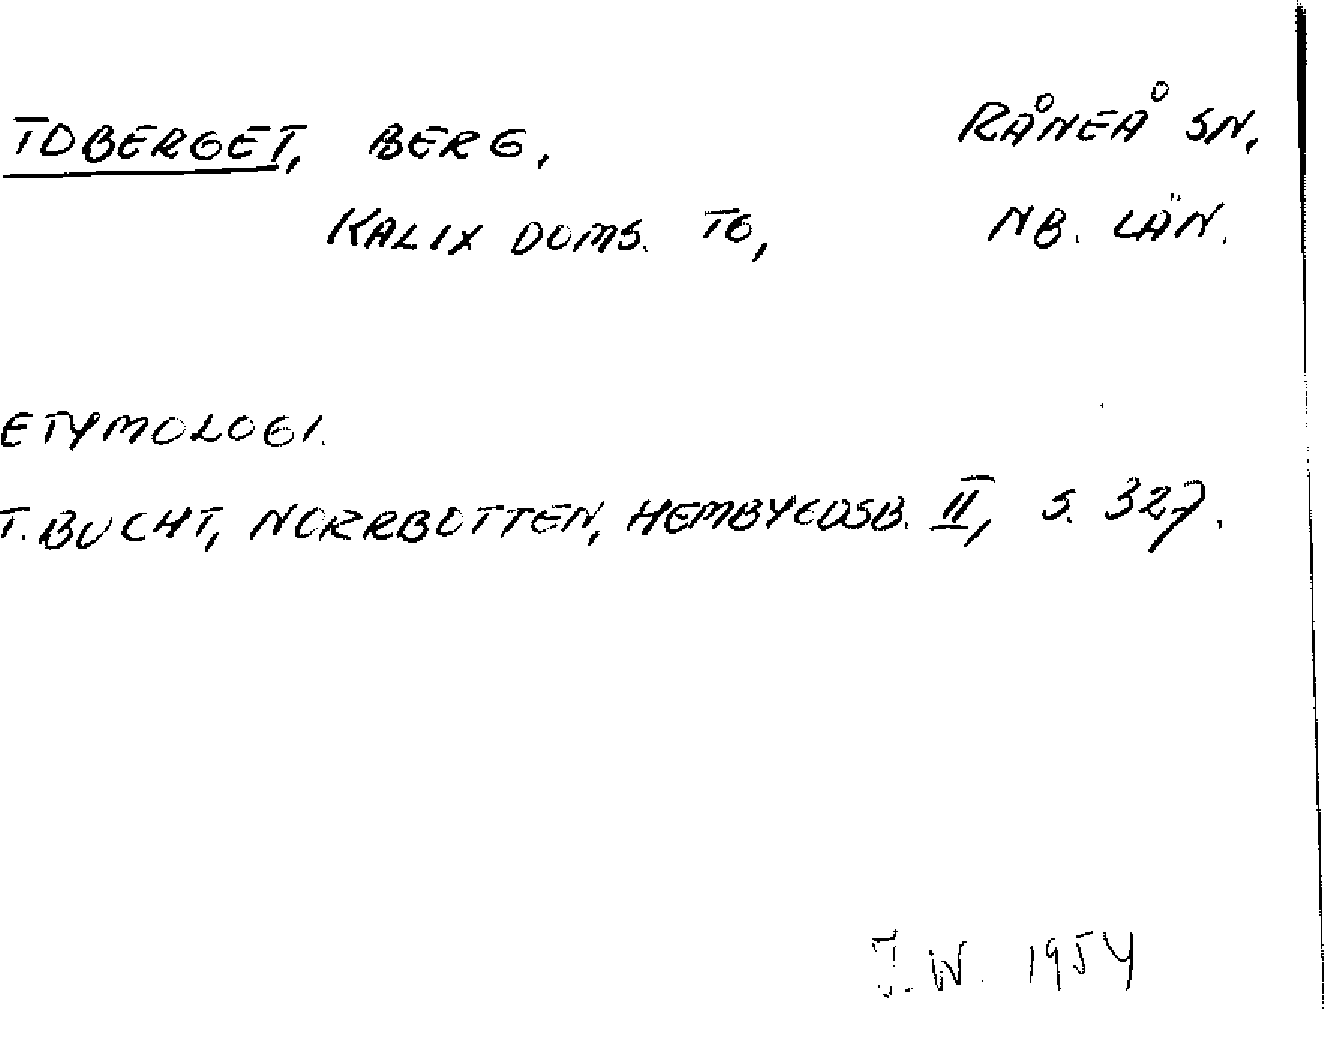 TOBERGET, BERG, RÅNEÅ SN.
KALIX DOMS. TG, NB. LÄN.
ETYMOLOGI.
T. BUCHT, NORRBOTTEN, HEMBYGDSB. II, S. 327.
J. W. 1954